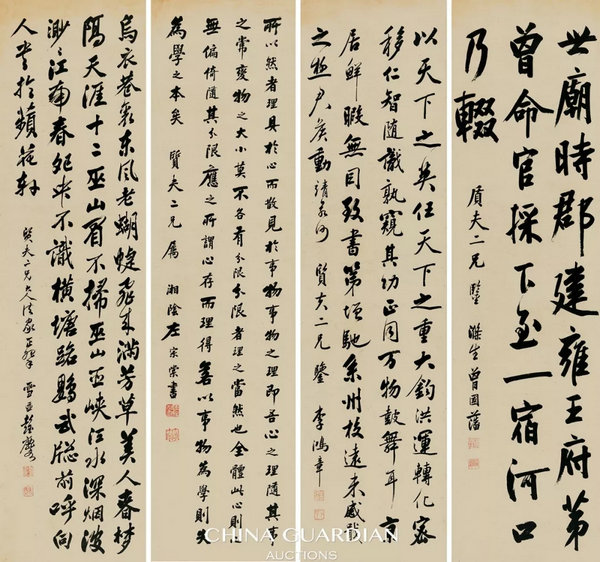 世廟時郡建雍王府第
曾命官採下至一宿河口
乃輟
質夫二兄鑒 滌生曾國藩
以天下之英任天下之重大鈞洪運轉化密
移仁智隨識孰窺其功正同万物鼓舞耳京
居鮮暇無因致書第垣馳系州校遠來感戢
之極 動靖 質夫二兄鑒 李鴻章
所以然者理具於心而散見於事物之理即吾心之理隨其事
之常變物之大小莫不各有分限分限者理之當然也全體此心則
無偏倚隨其分限應之所謂心存而理得若以事物為學則失
為學之本矣 質夫二兄屬 湘陰左宗棠書
烏衣巷裏東風老蝴蝶飛來滿芳草美人春夢
隔天涯十二巫山眉不掃巫山巫峽江水深烟波
渺渺江南春 不識橫塘路鸚武 前呼向
人 於蘋花軒
質夫二兄大人法家正 雪琴彭玉麐
CHINA GUARDIAN
AUCTIONS